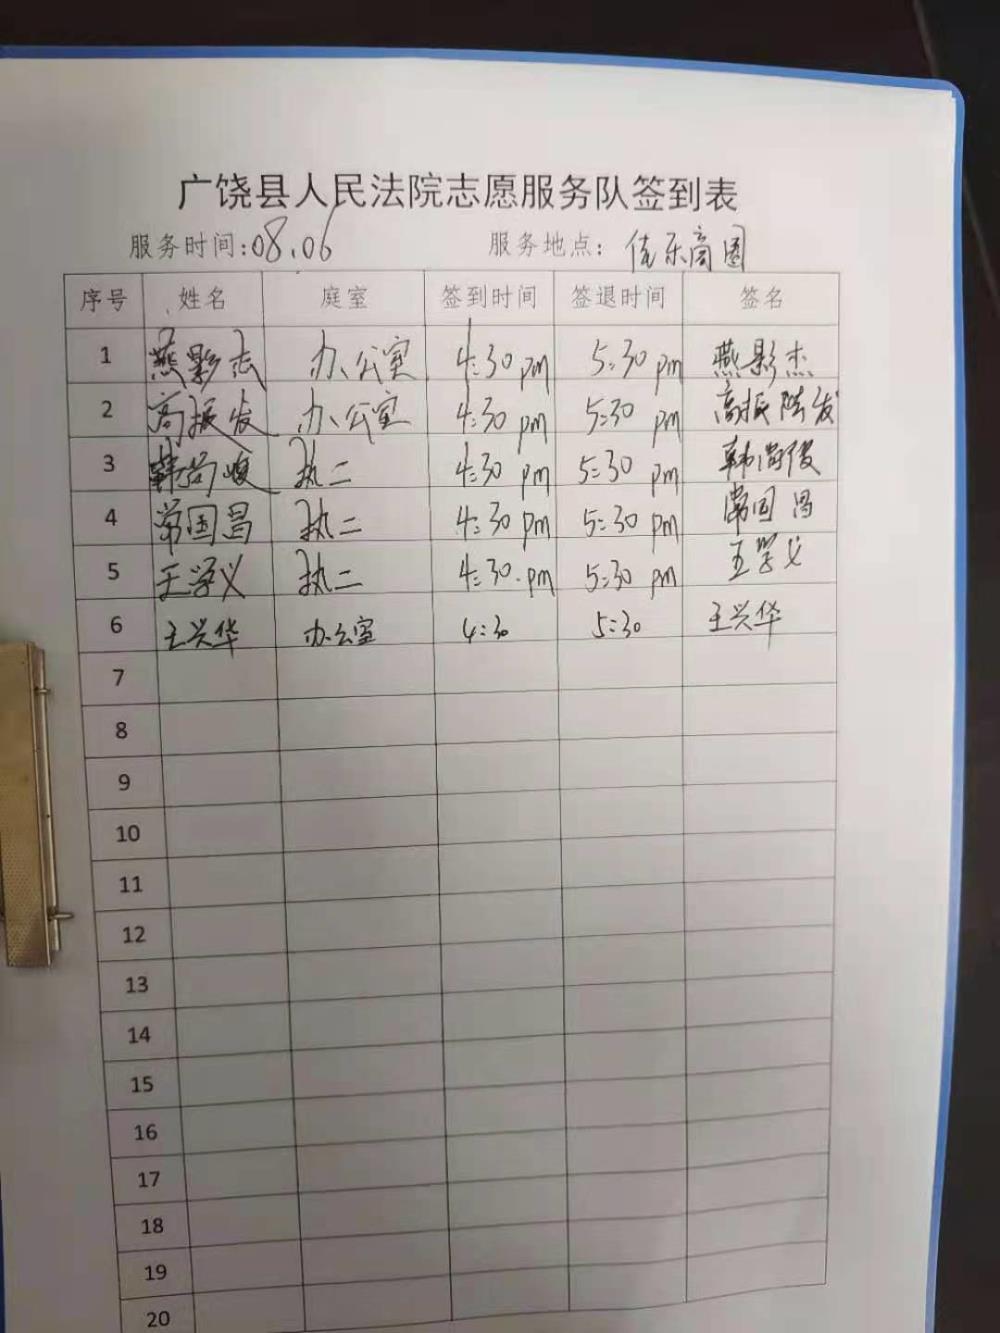 广饶县人民法院志愿服务队签到表
服务时间:08.06 服务地点: 佳乐商圈
序号 姓名 庭室 签到时间 签退时间 签名
1 燕影志 办公室 4:30 pm 5:30 pm 燕影杰
2 高振发 办公室 4:30 pm 5:30 pm 高振发
3 韩尚峻 执二 4:30 pm 5:30 pm 韩尚俊
4 常国昌 执二 4:30 pm 5:30 pm 常国昌
5 王学义 执二 4:30 pm 5:30 pm 王学义
6 王兴华 办公室 4:30 5:30 王兴华
7
8
9
10
11
12
13
14
15
16
17
18
19
20